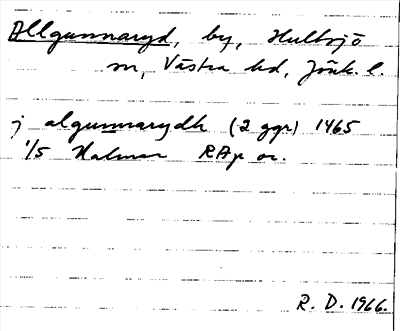 Allgunnaryd, by, Hultsjö
sn, Västra hd, Jönk. l.
j algunnarydh (2 ggr) 1465
1/5 Kalmar RAp or.
R. D. 1966.